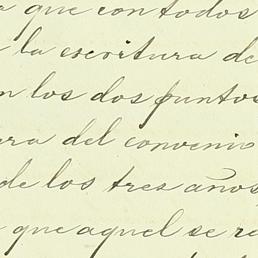 que con todos
la escritura de
los dos puntos
del convenio
de los tres años,
que aquel se